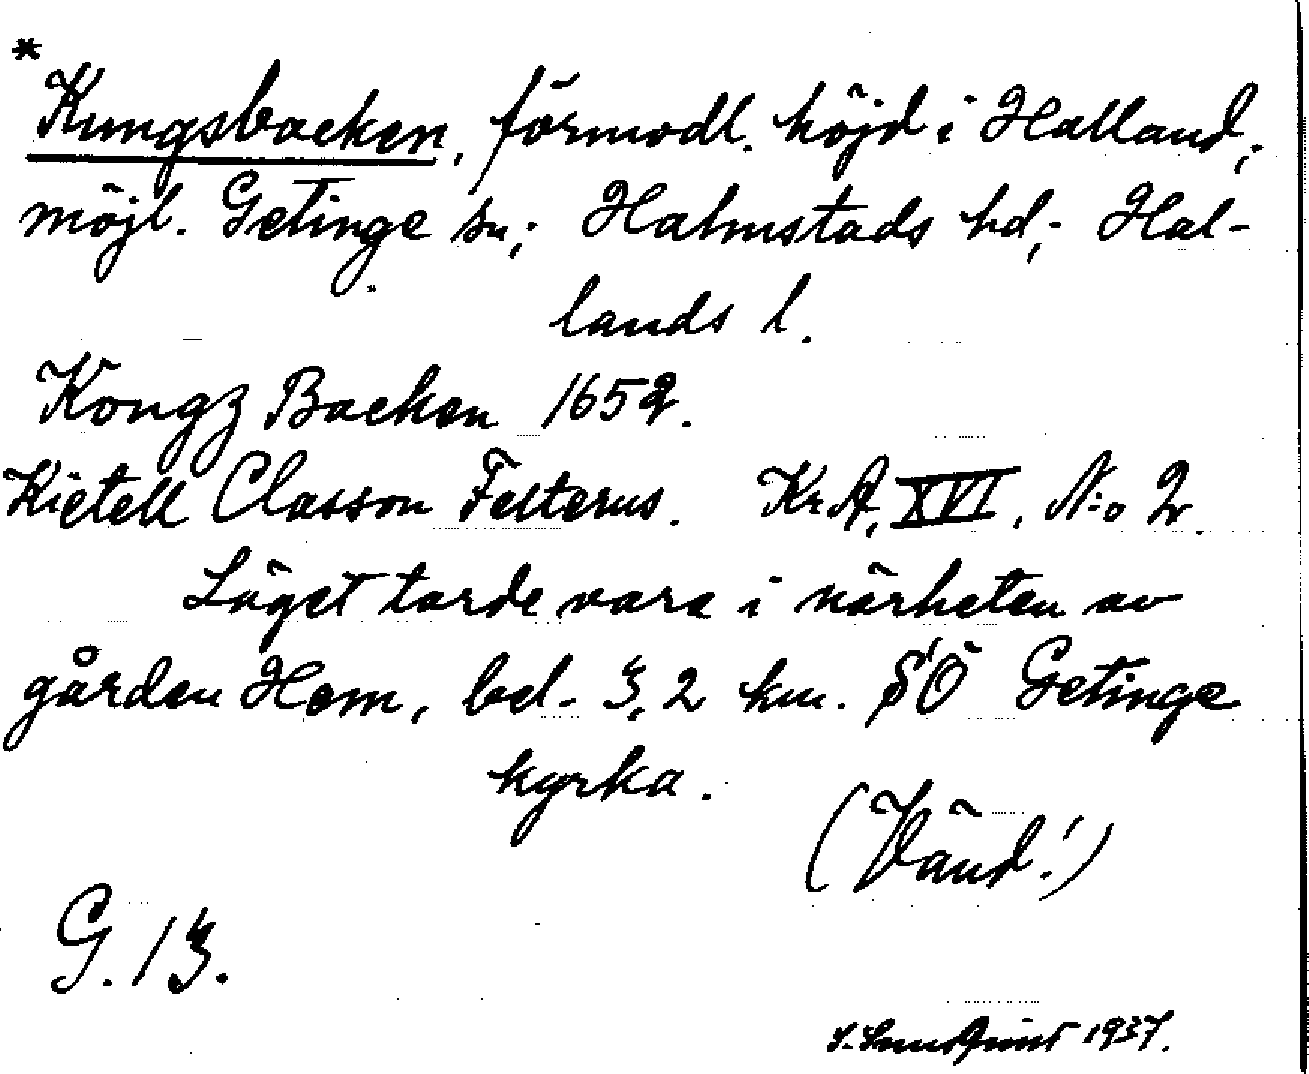 *
Kungsbacken, förmodl. höjd i Halland;
möjl. Getinge sn; Halmstads hd; Hal-
lands l.
Kongz Backen 1652.
Kietell Classon Felterus. Kr.A. XVI. N:o 2.
Läget torde vara i närheten av
gården Hem, bel. 3,2 km. SÖ Getinge
kyrka.
(Vänd!)
G. 13.
1937.